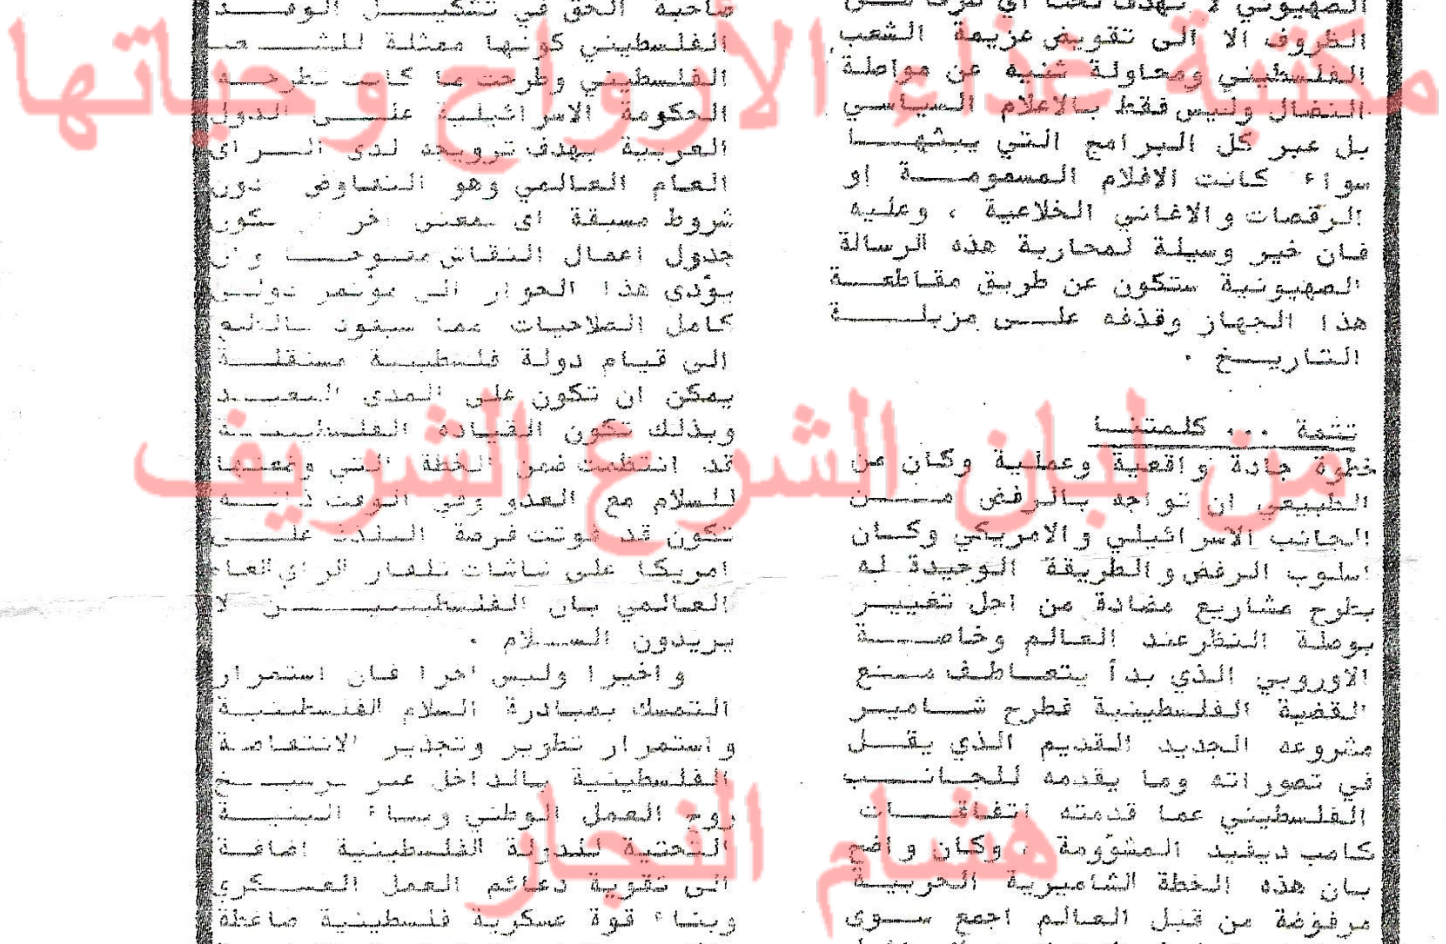 الظروف الا الى تقويض عزيمة الشعب
الفلسطيني ومحاولة ثنيه عن مواصلة
النضال وليس فقط بالاعلام السياسي
بل عبر كل البرامج التي يبثهـــا
سواء كانت الافلام المسمومـــة او
الرقصات والاغاني الخلاعية ، وعليه
فان خير وسيلة لمحاربة هذه الرسالة
الصهيونية ستكون عن طريق مقاطعـــة
هذا الجهاز وقذفه علـــى مزبلـــة
التاريـــخ .
تتمة ... كلمتنـــا
خطوة جادة واقعية وعملية وكان من
الطبيعي ان تواجه بالرفض مـــن
الجانب الاسرائيلي والامريكي وكـان
اسلوب الرفض والطريقة الوحيدة له
بطرح مشاريع مضادة من اجل تغييـر
بوصلة النظر عند العالم وخاصـــة
الاوروبي الذي بدأ يتعـــاطف مـــع
القضية الفلسطينية فطرح شـــامير
مشروعه الجديد القديم الذي يقـــل
في تصوراته وما يقدمه للجـــانـــب
الفلسطيني عما قدمته اتفاقـــات
كامب ديفيد المشؤومة ، وكان واضح
بان هذه الخطة الشاميرية الحربيـة
مرفوضة من قبل العالم اجمع ســـوى
صاحبة الحق في تشكيـــل الوفـــد
الفلسطيني كونها ممثلة للشـــعب
الفلسطيني وطرحت ما كانت تطرحـــه
الحكومة الاسرائيلية علـــى الدول
العربية بهدف ترويجه لدى الـــراى
العام العالمي وهو التفاوض دون
شروط مسبقة اى بمعنى اخر يكون
جدول اعمال النقاش مفتوحـــا وان
يؤدى هذا الحوار الى مؤتمر دولـي
كامل الصلاحيات مما سيقود
الى قيام دولة فلسطينيـــة مستقلـــة
يمكن ان تكون على المدى البعيـــد
وبذلك تكون القيادة الفلسطينيـــة
قد انتظمت ضمن الخطة التي وضعتها
للسلام مع العدو وفي الوقت ذاتـــه
تكون قد فوتت فرصة
امريكا على شاشات تلفاز الراي العام
العالمي بان الفلسطينييـــن لا
يريدون الســـلام .
واخيرا وليس اخرا فـان استمرار
التمسك بمبادرة السلام الفلسطينيـة
واستمرار تطوير وتجذير الانتفاضة
الفلسطينية بالداخل عبر ترسيـــخ
روح العمل الوطني وبناء البنيـــة
التحتية للدولة الفلسطينية اضافـة
الى تقوية دعائم العمل العسـكري
وبناء قوة عسكرية فلسطينية ضاغطة
مكتبة غذاء الارواح وحياتها
من لبان الشرع الشريف
هشام النجار